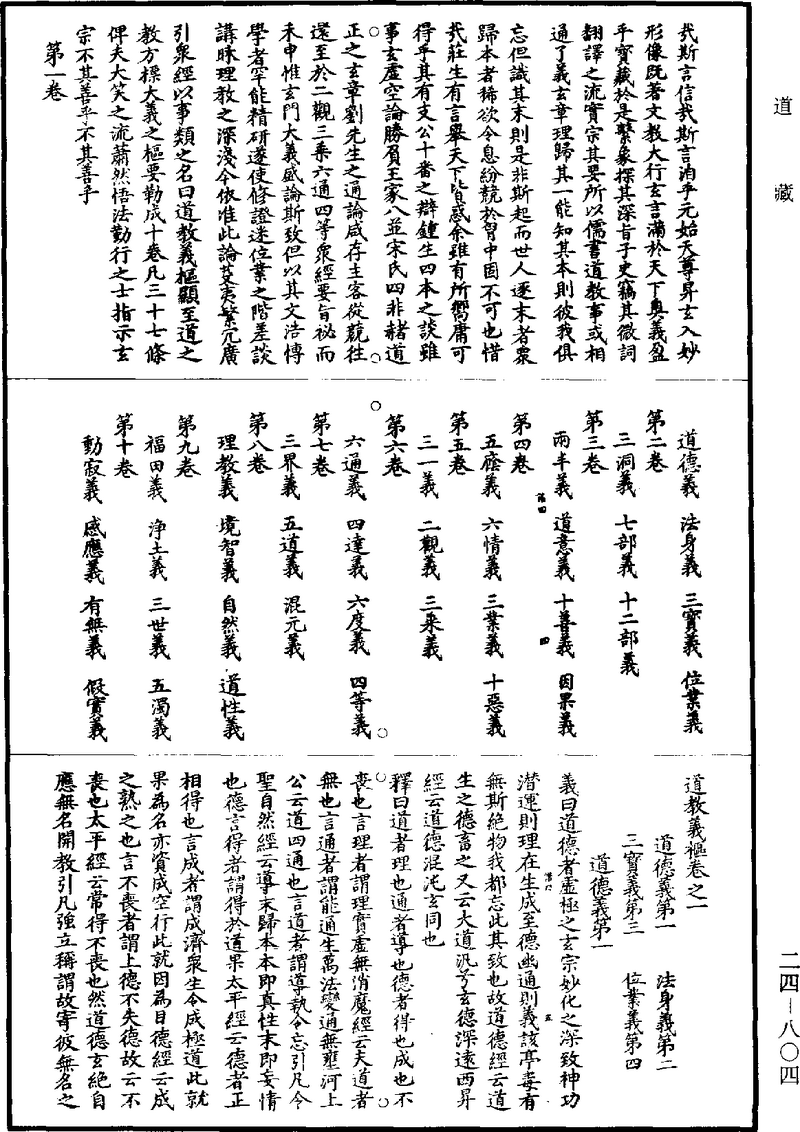 道藏
哉斯言信哉斯言洎乎元始天尊昇玄入妙
形像既著文教大行玄言滿於天下奥義盈
乎寶藏於是繫象探其深旨子史竊其微詞
翻譯之流實宗其要所以儒書道教事或相
通了義玄章理歸其一能知其本則彼我俱
忘但識其末則是非斯起而世人逐末者衆
歸本者稀欲令息紛競於胷中固不可也惜
哉莊生有言舉天下皆惑余雖有所嚮庸可
得乎其有支公十番之辯鍾生四本之談雖
事玄虛空論勝負王家八並宋氏四非赭道
正之玄章劉先生之通論咸存主客從競往
還至於二觀三乘六通四等衆經要旨祕而
未申惟玄門大義盛論斯致但以其文浩博
學者罕能精研遂使修證迷位業之階差談
講昧理教之深淺今依准此論芟夷繁冗廣
引衆經以事類之名曰道教義樞顯至道之
教方標大義之樞要勒成十卷凡三十七條
俾夫大笑之流蕭然悟法勤行之士指示玄
宗不其善乎不其善乎
第一卷
道德義 法身義 三寶義 位業義
第二卷
三洞義 七部義 十二部義
第三卷
兩半義 道意義 十善義 因果義
第四卷
五廕義 六情義 三業義 十惡義
第五卷
三一義 二觀義 三乘義
第六卷
六通義 四達義 六度義 四等義
第七卷
三界義 五道義 混元義
第八卷
理教義 境智義 自然義 道性義
第九卷
福田義 淨土義 三世義 五濁義
第十卷
動寂義 感應義 有無義 假實義
道教義樞卷之一
道德義第一 法身義第二
三寶義第三 位業義第四
道德義第一
義曰道德者虛極之玄宗妙化之深致神功
潜運則理在生成至德幽通則義該亭毒有
無斯絶物我都忘此其致也故道德經云道
生之德畜之又云大道汎兮玄德深遠西昇
經云道德混沌玄同也
釋曰道者理也通者導也德者得也成也不
喪也言理者謂理實虛無消魔經云夫道者
無也言通者謂能通生萬法變通無壅河上
公云道四通也言道者謂導執令忘引凡令
聖自然經云導末歸本本即真性末即妄情
也德言得者謂得於道果太平經云德者正
相得也言成者謂成濟衆生令成極道此就
果為名亦資成空行此就因為目德經云成
之熟之也言不喪者謂上德不失德故云不
喪也太平經云常得不喪也然道德玄絶自
應無名開教引凡強立稱謂故寄彼無名之
二四－八〇四